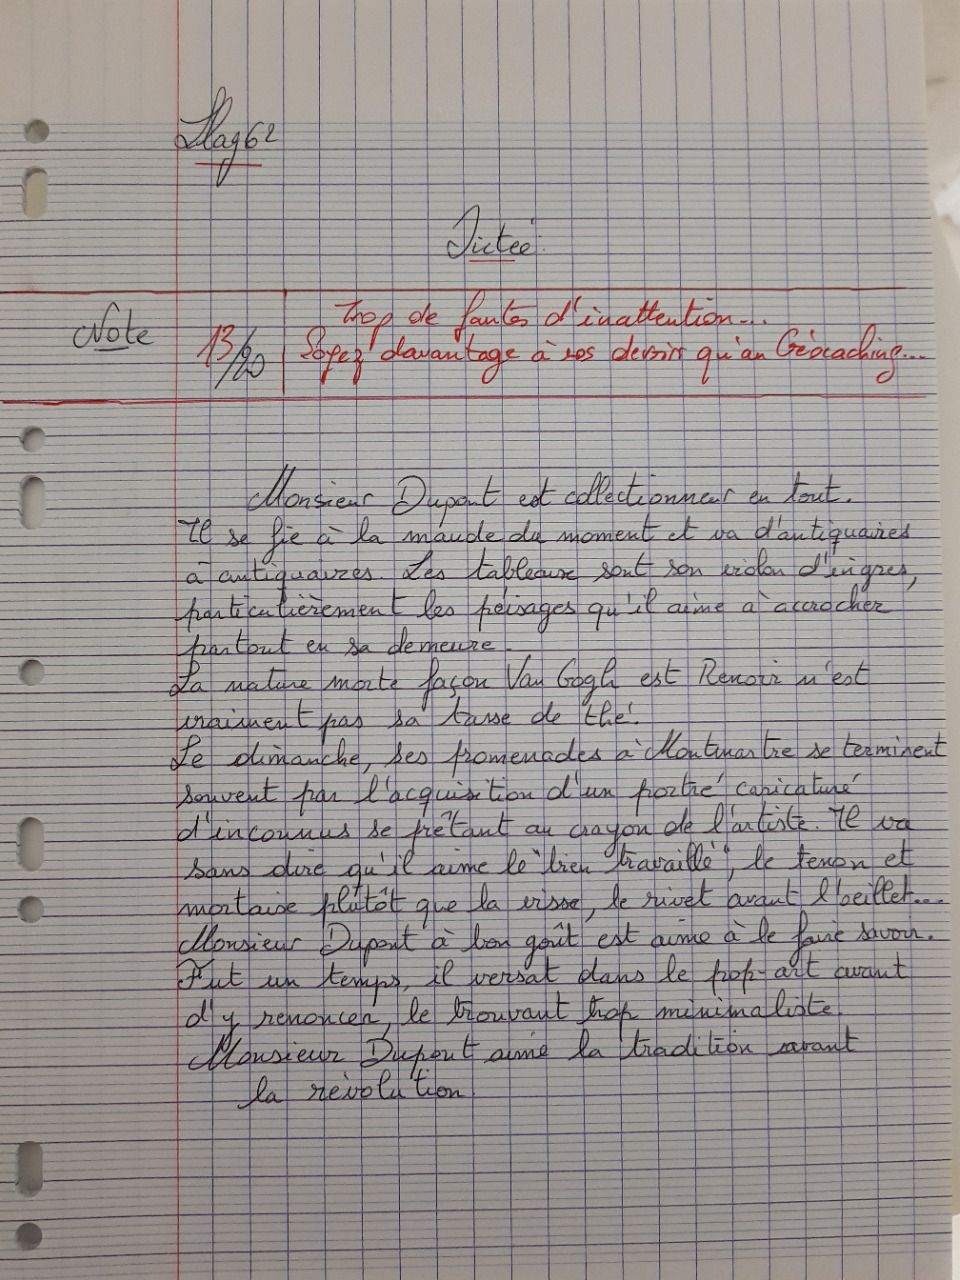 Stag62
Dictée
Note
13/20
Trop de fautes d'inattention...
Soyez davantage à vos devoirs qu'au Géocaching...
Monsieur Dupont est collectionneur en tout.
Il se fie à la maude du moment et va d'antiquaires
à antiquaires. Les tableaux sont son violon d'ingres,
particulièrement les péisages qu'il aime à accrocher
partout en sa demeure.
La nature morte façon Van Gogh est Renoir n'est
vraiment pas sa tasse de thé.
Le dimanche, ses promenades à Montmartre se terminent
souvent par l'acquisition d'un portré caricaturé
d'inconnus se prêtant au crayon de l'artiste. Il va
sans dire qu'il aime le "bien travaillé", le tenon et
mortaise plutôt que la visse, le rivet avant l'oeillet...
Monsieur Dupont à bon goût est aime à le faire savoir.
Fut un temps, il versat dans le pop-art avant
d'y renoncer, le trouvant trop minimaliste.
Monsieur Dupont aime la tradition avant
la révolution.